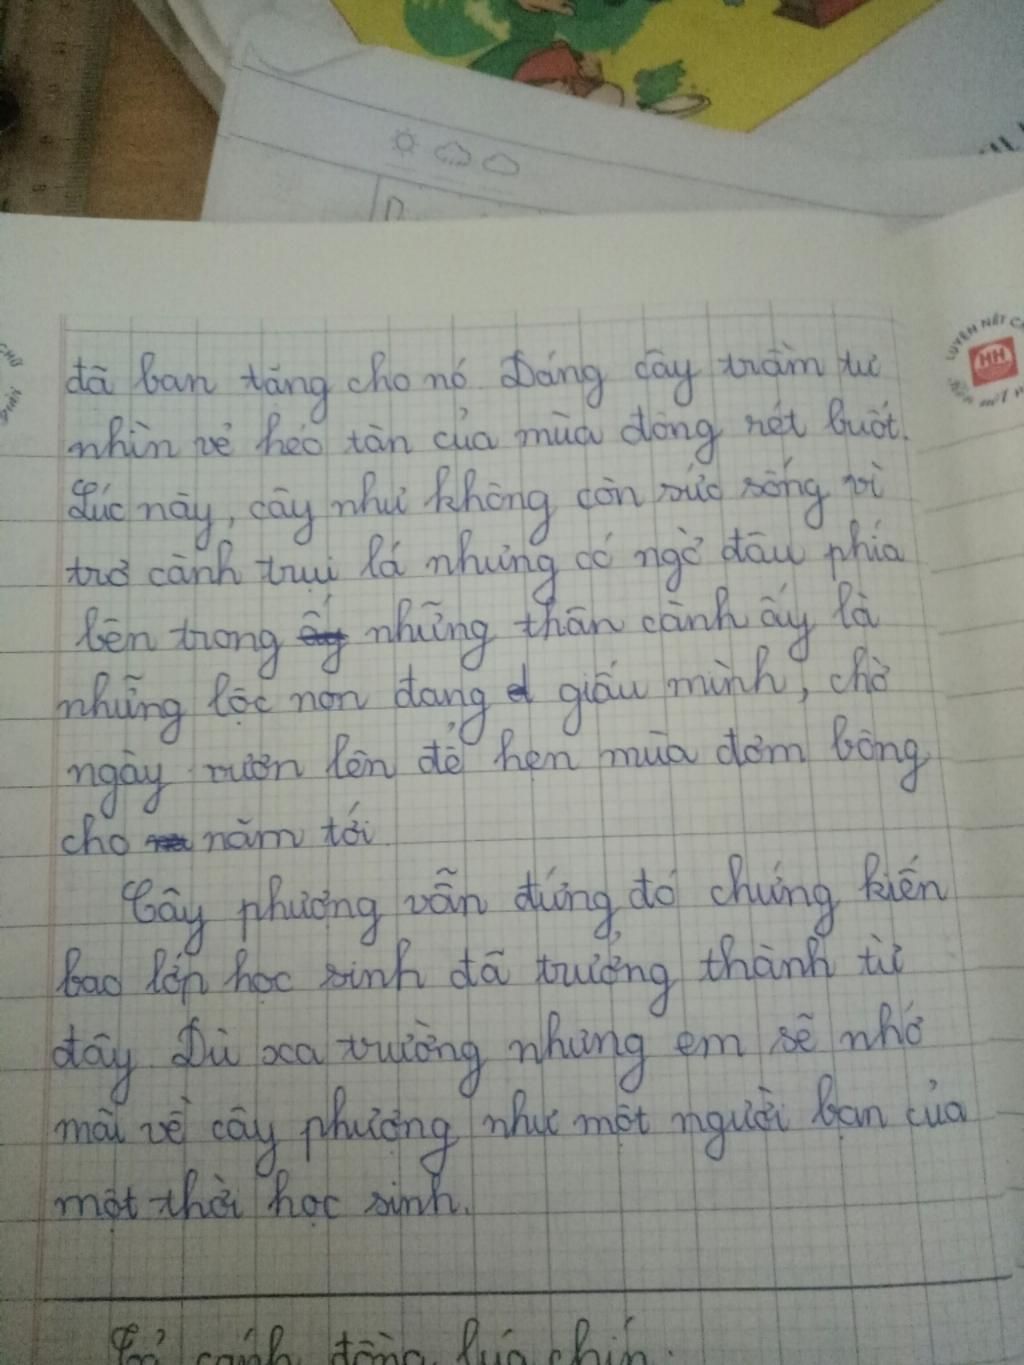 đã ban tăng cho nó. Dáng cây trầm tư
nhìn vẻ héo tàn của mùa đông rét buốt.
Lúc này, cây như không còn sức sống vì
trơ cành trụi lá nhưng có ngờ đâu phía
bên trong những thân cành ấy là
những lộc non đang giấu mình, chờ
ngày vươn lên để hẹn mùa đơm bông
cho năm tới.
Cây phượng vẫn đứng đó chứng kiến
bao lớp học sinh đã trưởng thành từ
đây. Dù xa trường nhưng em sẽ nhớ
mãi về cây phượng như một người bạn của
một thời học sinh.
Tả cánh đồng lúa chín.
LUYỆN NÉT
HH